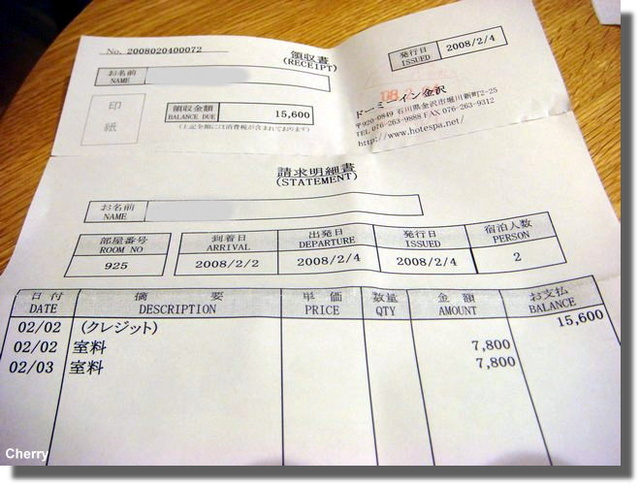 No. 2008020400072
領収書
(RECEIPT)
発行日
ISSUED
2008/2/4
お名前
NAME
印
紙
領収金額
BALANCE DUE
15,600
(上記金額には消費税が含まれております)
ドーミーイン金沢
〒920-0849 石川県金沢市堀川新町2-25
TEL 076-263-9888 FAX 076-263-9312
http://www.hotespa.net/
請求明細書
(STATEMENT)
お名前
NAME
部屋番号
ROOM NO
925
到着日
ARRIVAL
2008/2/2
出発日
DEPARTURE
2008/2/4
発行日
ISSUED
2008/2/4
宿泊人数
PERSON
2
日付 摘要 単価 数量 金額 お支払
DATE DESCRIPTION PRICE QTY AMOUNT BALANCE
02/02 (クレジット) 15,600
02/02 室料 7,800
02/03 室料 7,800
Cherry